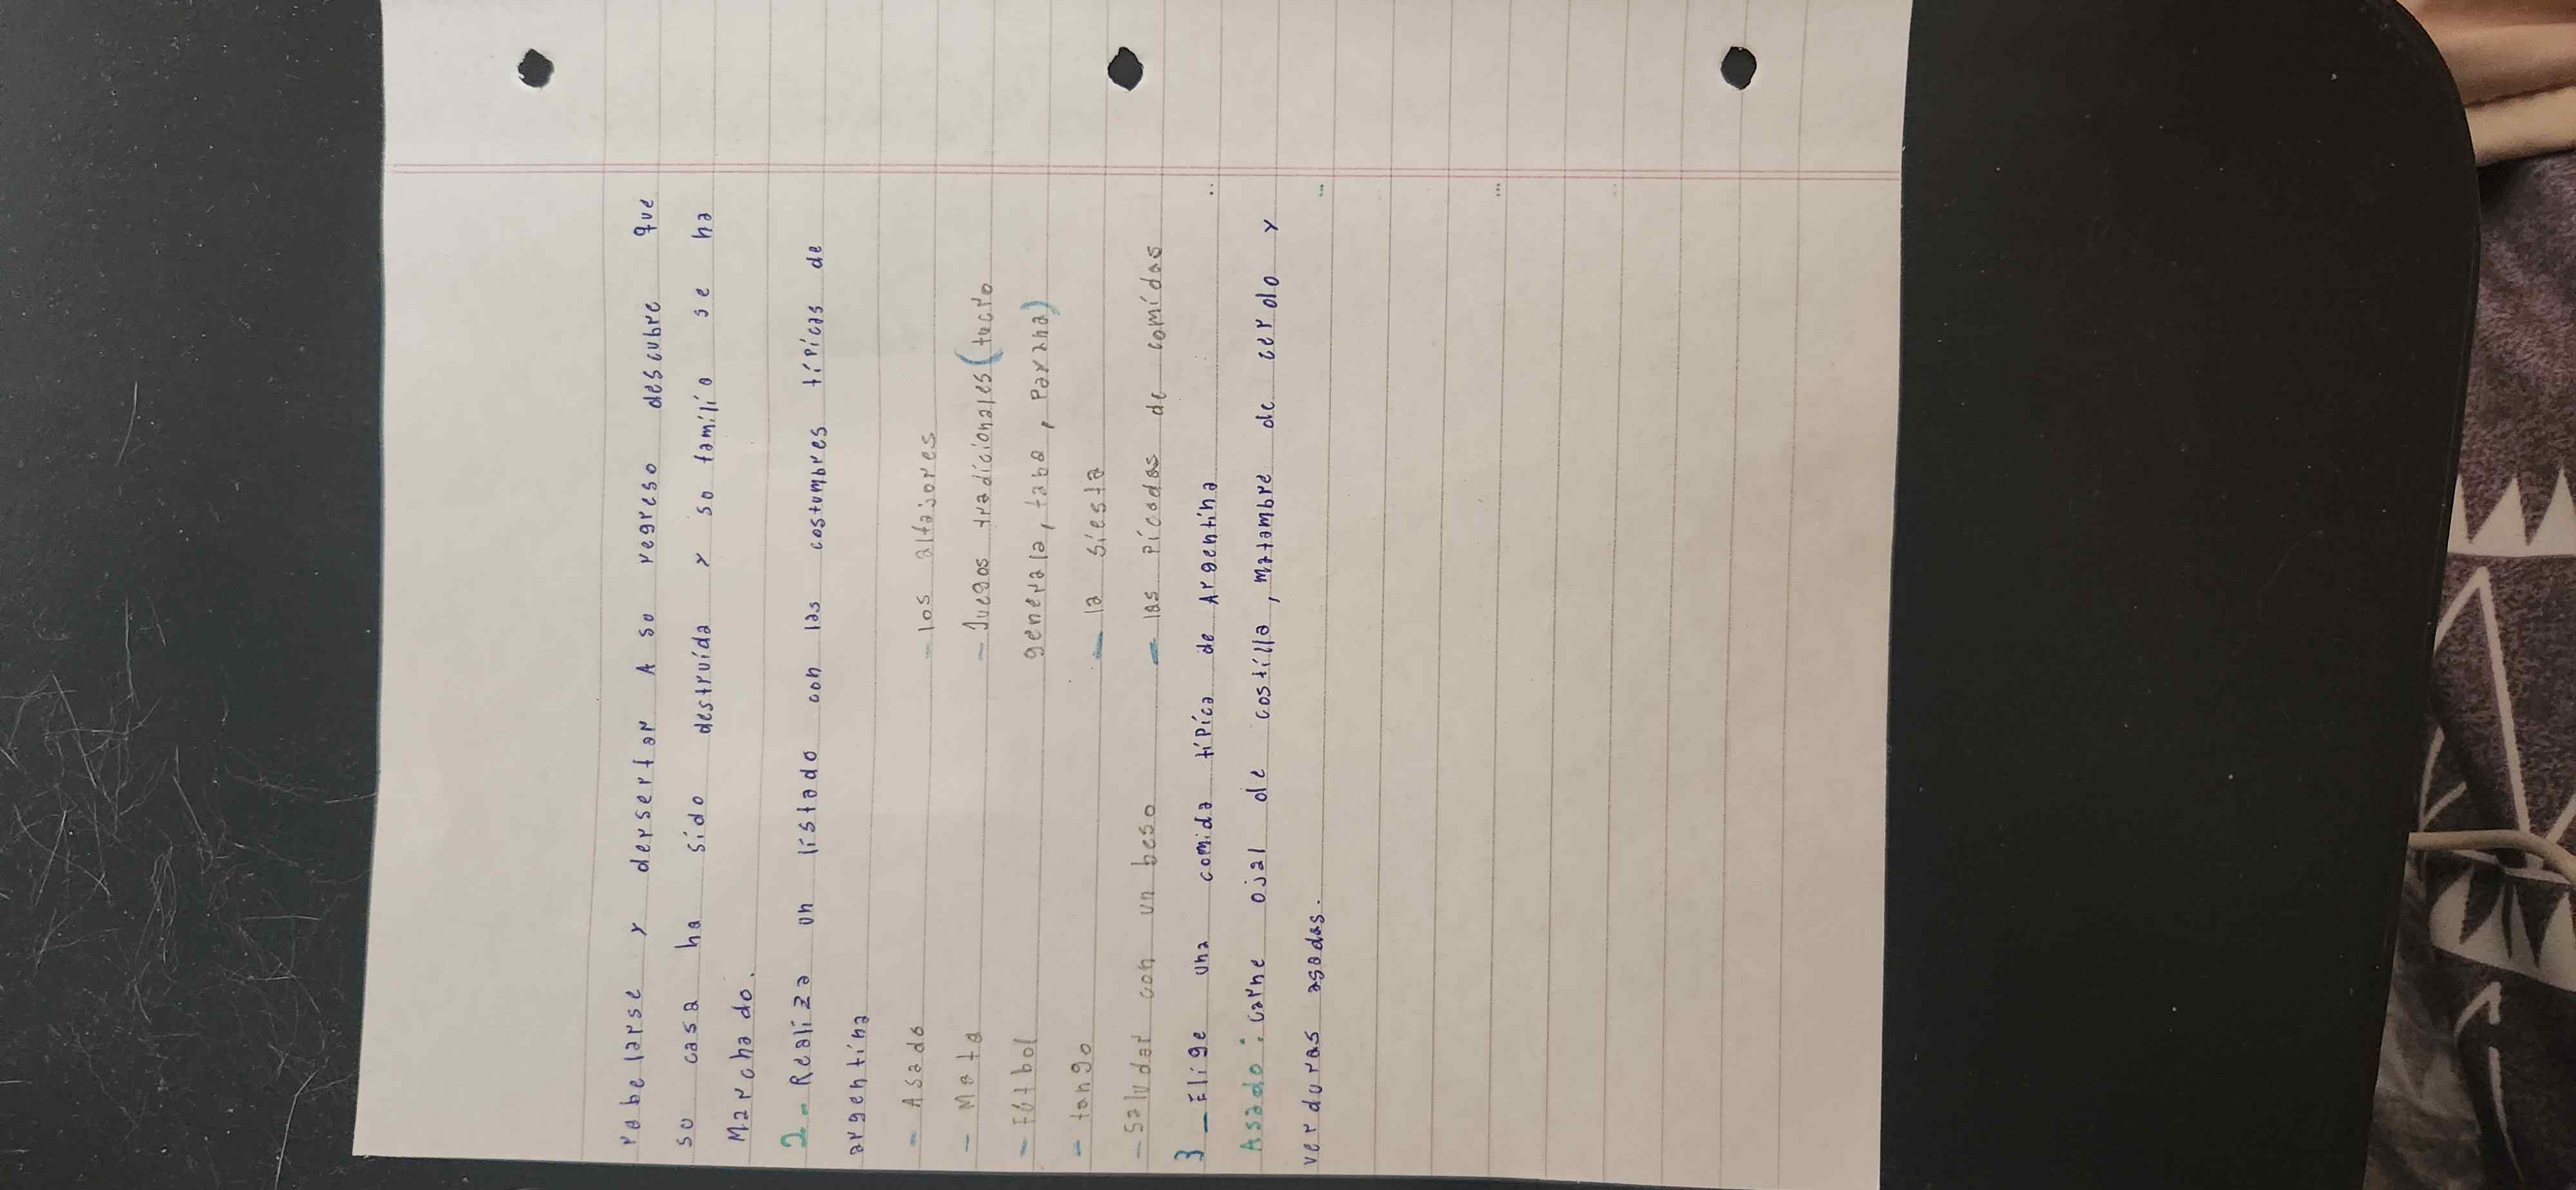 rabelarse y dersertar A so regreso descubre que
su casa ha sido destruida y so familio se ha
Marchado.
2- Realiza un listado con las costumbres típicas de
argentina
- Asado
- los alfajores
- Mate
- Juegos tradicionales (tucro
generala, taba, Parxna)
- Fútbol
- tango
- la siesta
- saludar con un beso
- las picadas de comidas
3 - Elige una comida típica de Argentina
Asado: carne ojal de costilla, matambre de cerdo y
verduras asadas.